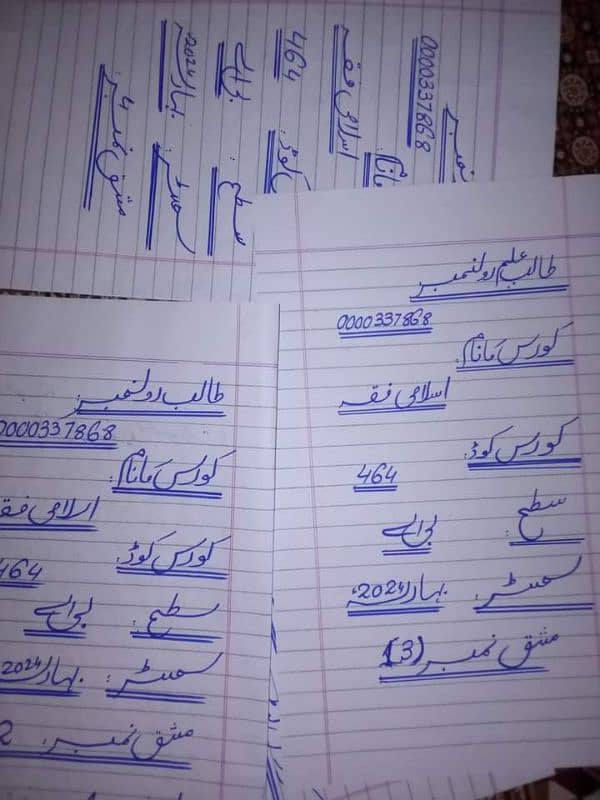 نمبر
0000337868
نام
اسلامی فقہ
کوڈ:
464
سطح:
بی اے
سمسٹر: بہار 2024ء
مشق نمبر: 4
طالب علم رولنمبر
0000337868
کورس کا نام:
اسلامی فقہ
کورس کوڈ:
464
سطح:
بی اے
سمسٹر: بہار 2024ء
مشق نمبر (3)
طالب رولنمبر:
0000337868
کورس کا نام:
اسلامی فقہ
کورس کوڈ:
464
سطح: بی اے
سمسٹر: بہار 2024
مشق نمبر: 2